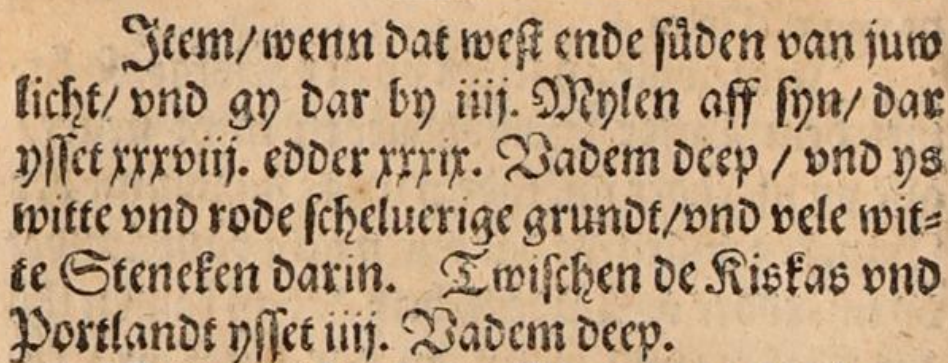 Item/wenn dat west ende sůden van juw
licht/ vnd gy dar by iiij. Mylen aff syn/ dar
ysset xxxviij. edder xxxix. Vadem deep / vnd ys
witte vnd rode scheluerige grundt/vnd vele wit-
te Steneken darin. Twischen de Kiskas vnd
Portlandt ysset iiij. Vadem deep.